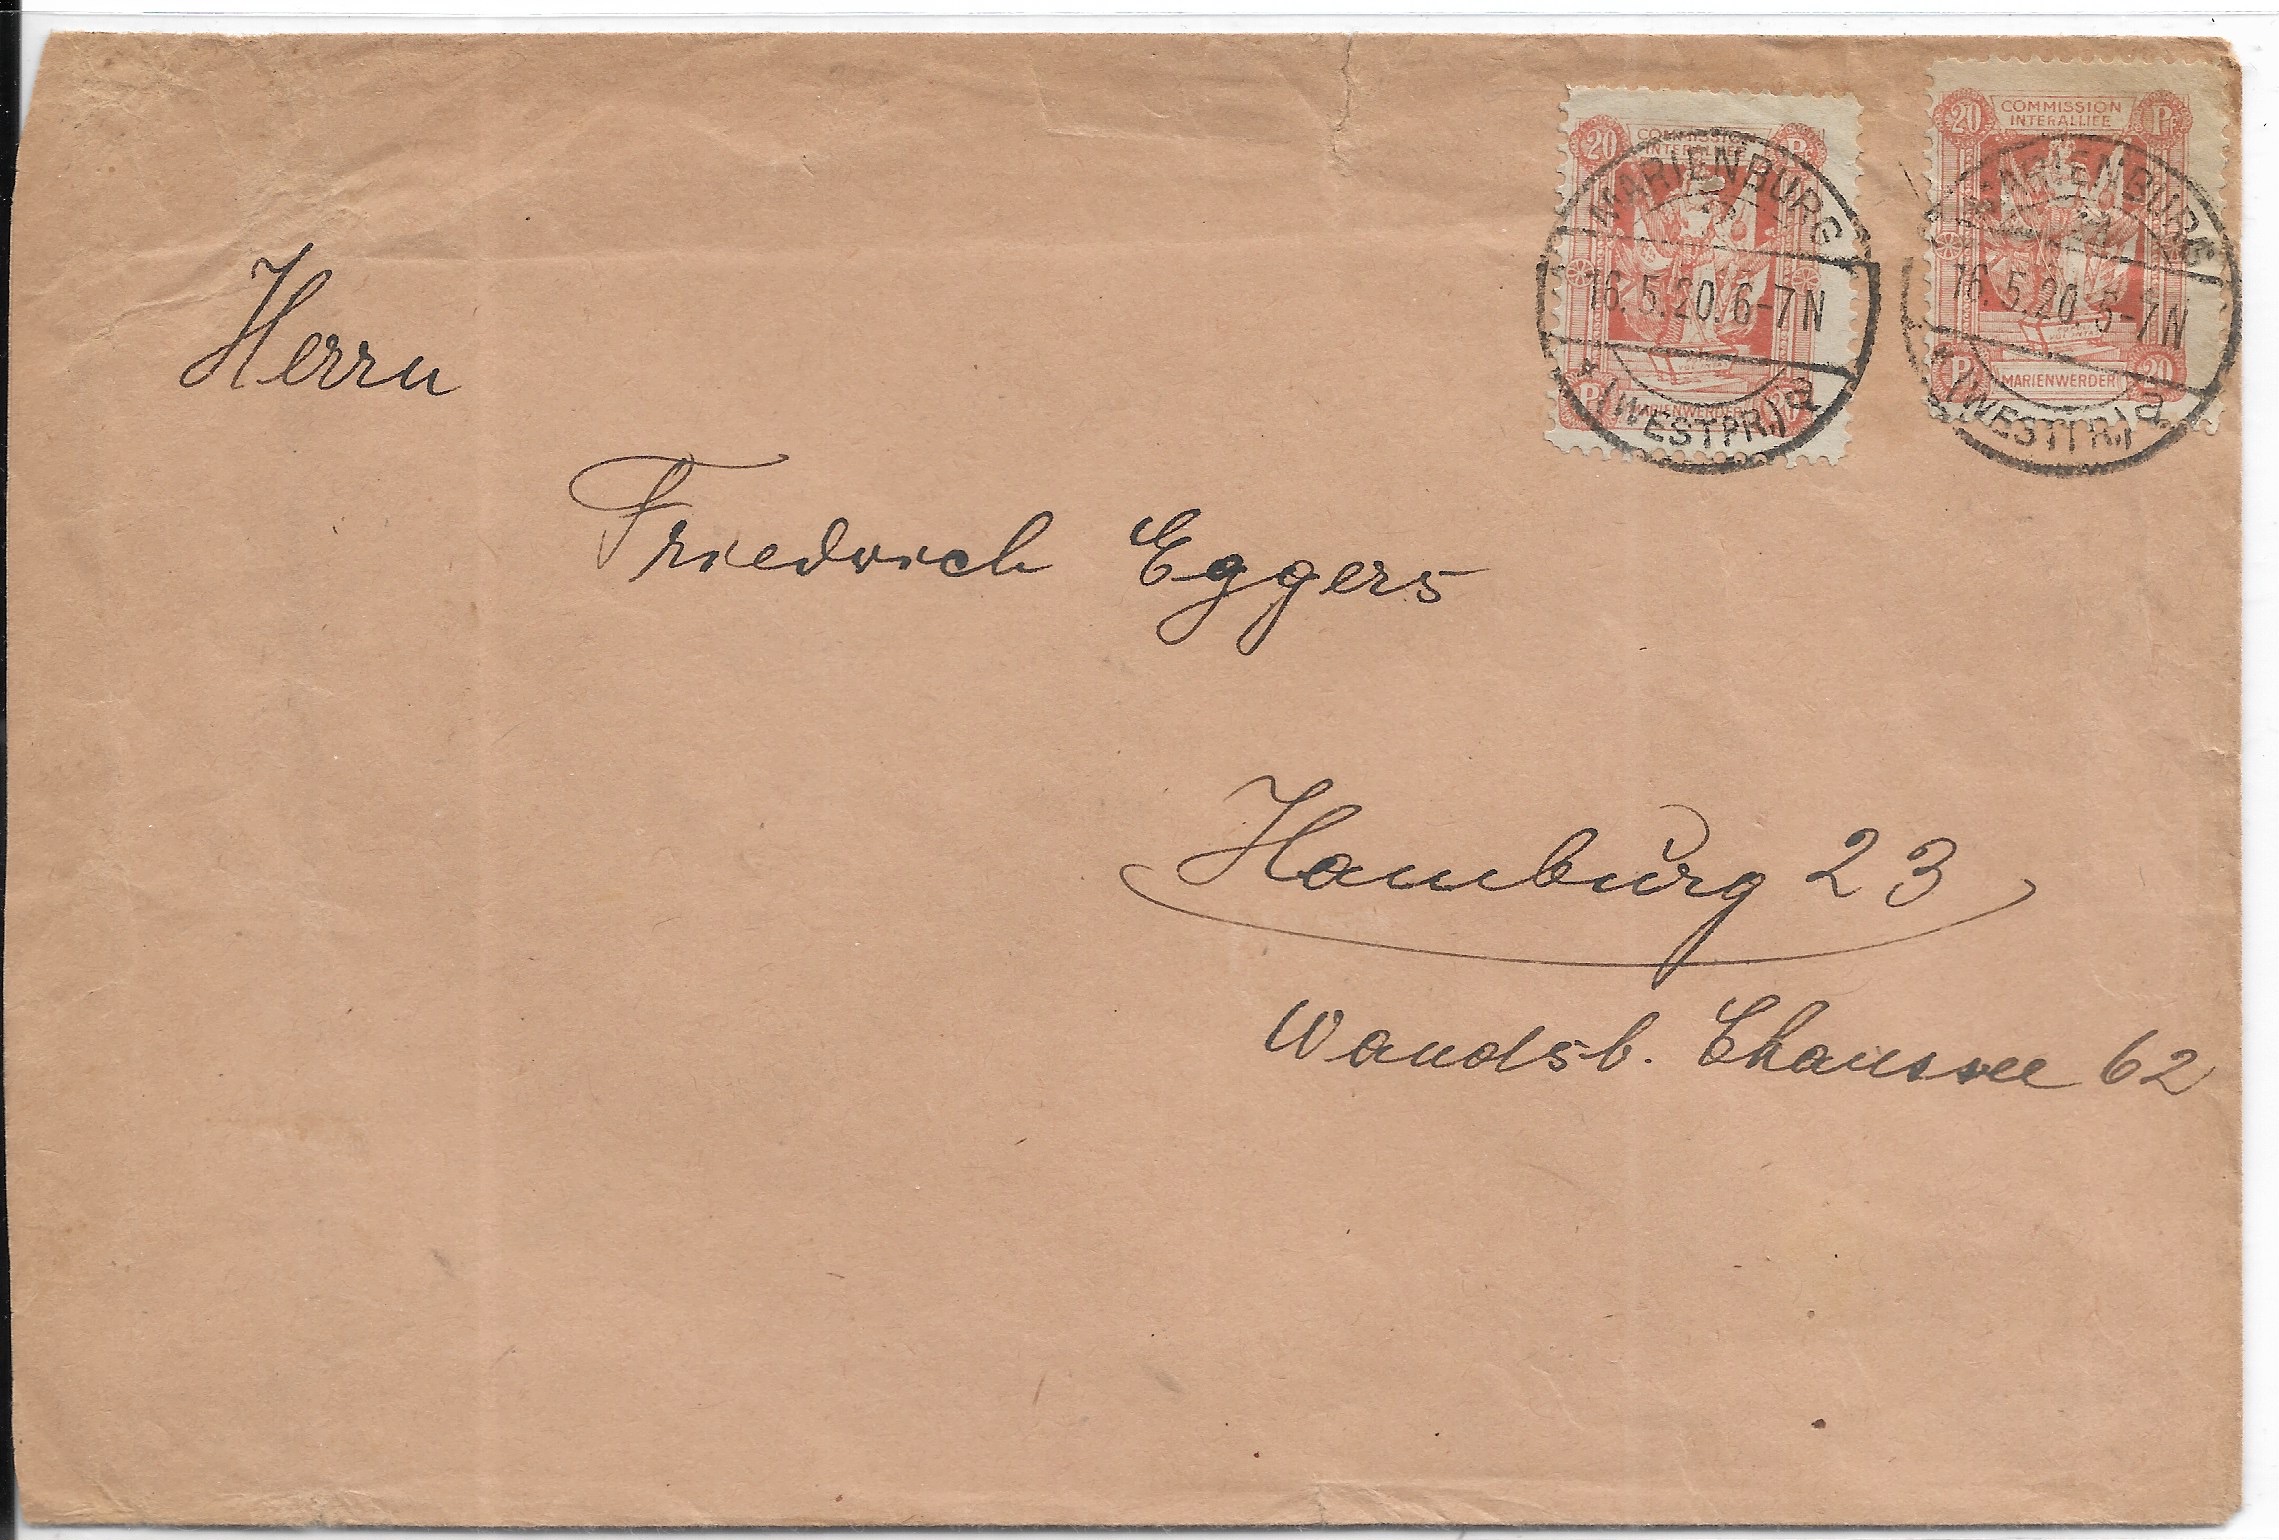 20 COMMISSION INTERALLIÉE Pf
MARIENBURG
16.5.20.6-7N
* (WESTPR.) a
Pf MARIENWERDER 20
20 COMMISSION INTERALLIÉE Pf
MARIENBURG
16.5.20.6-7N
* (WESTPR.) a
Pf MARIENWERDER 20
Herrn
Friedrich Eggers
Hamburg 23
Wandsb. Chaussee 62